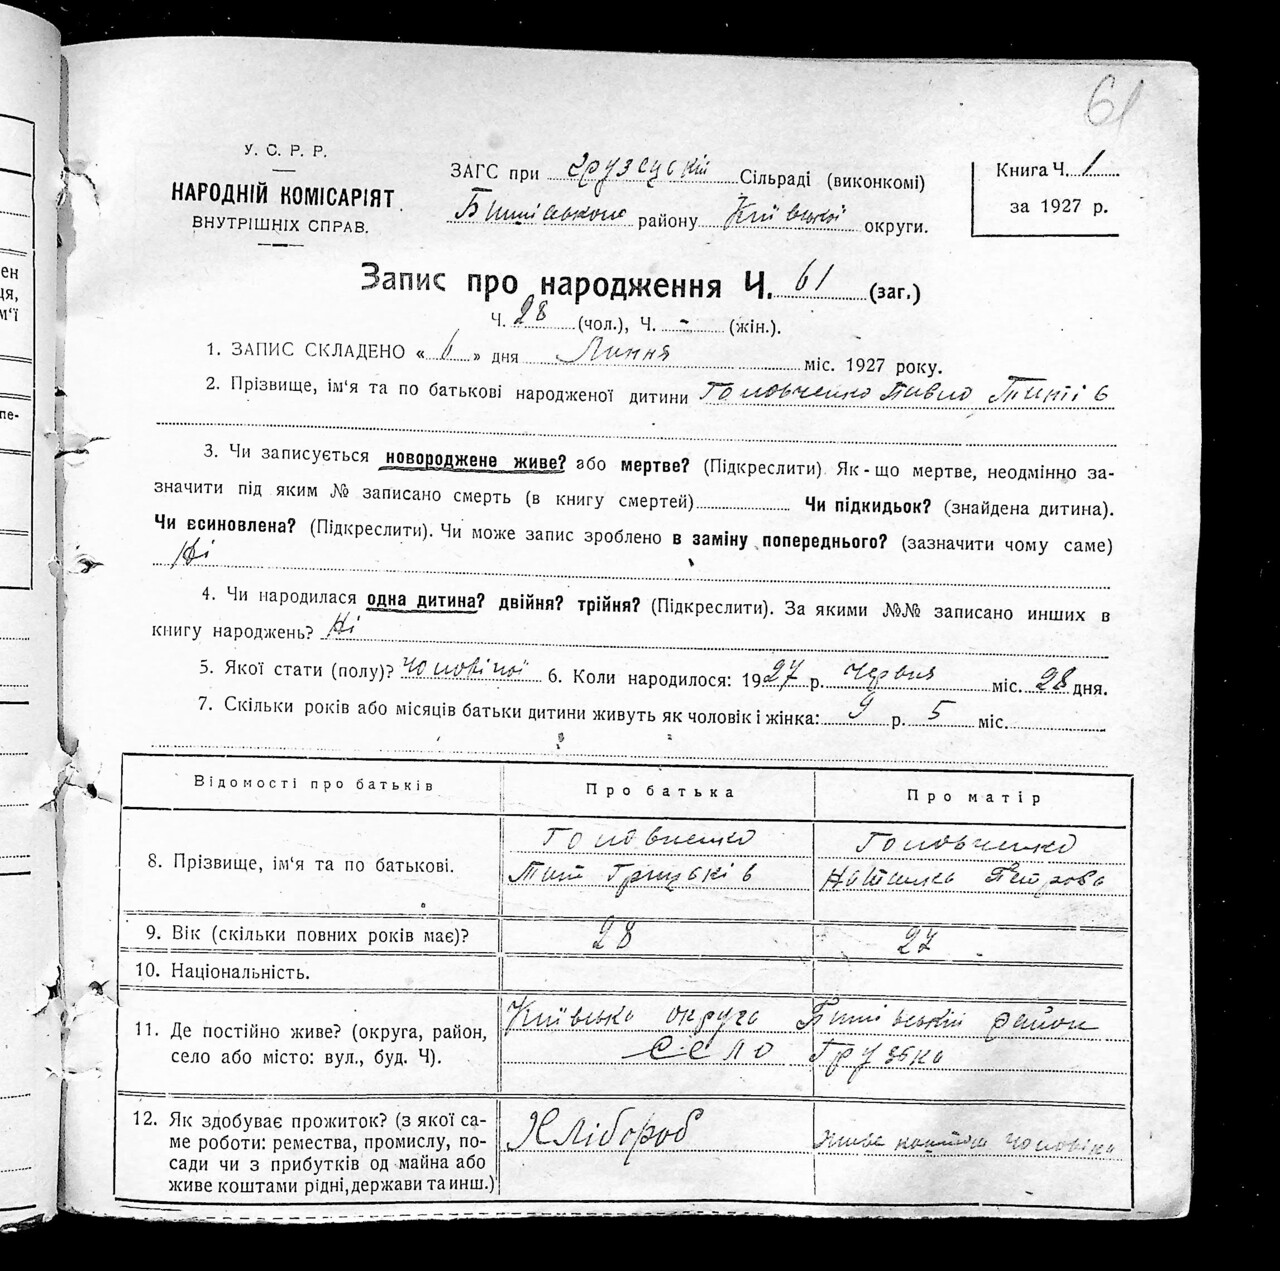 61
У. С. Р. Р.
НАРОДНІЙ КОМІСАРІЯТ
ВНУТРІШНІХ СПРАВ.
ЗАГС при Грузській Сільраді (виконкомі)
Бишівського району Київської округи.
Книга Ч. 1
за 1927 р.
Запис про народження Ч. 61 (заг.)
Ч. 28 (чол.), Ч. - (жін.).
1. ЗАПИС СКЛАДЕНО « 6 » дня Липня міс. 1927 року.
2. Прізвище, ім‘я та по батькові народженої дитини Головченко Павло Титів
3. Чи записується новороджене живе? або мертве? (Підкреслити) Як-що мертве, неодмінно за-
значити під яким № записано смерть (в книгу смертей) Чи підкидьок? (знайдена дитина).
Чи всиновлена? (Підкреслити). Чи може запис зроблено в заміну попереднього? (зазначити чому саме)
Ні
4. Чи народилася одна дитина? двійня? трійня? (Підкреслити). За якими №№ записано инших в
книгу народжень? Ні
5. Якої стати (полу)? Чоловічої 6. Коли народилося: 1927 р. Червня міс. 28 дня.
7. Скільки років або місяців батьки дитини живуть як чоловік і жінка: 9 р. 5 міс.
Відомості про батьків Про батька Про матір
8. Прізвище, ім‘я та по батькові. Головченко Тит Грицьків Головченко Наталка Петрова
9. Вік (скільки повних років має)? 28 27
10. Національність.
11. Де постійно живе? (округа, район, Київська округа Бишівський район
село або місто: вул., буд. Ч). село Грузька
12. Як здобуває прожиток? (з якої са- Хлібороб живе коштом чоловіка
ме роботи: ремества, промислу, по-
сади чи з прибутків од майна або
живе коштами рідні, держави та инш.)
ен
ця,
м‘ї
пе-